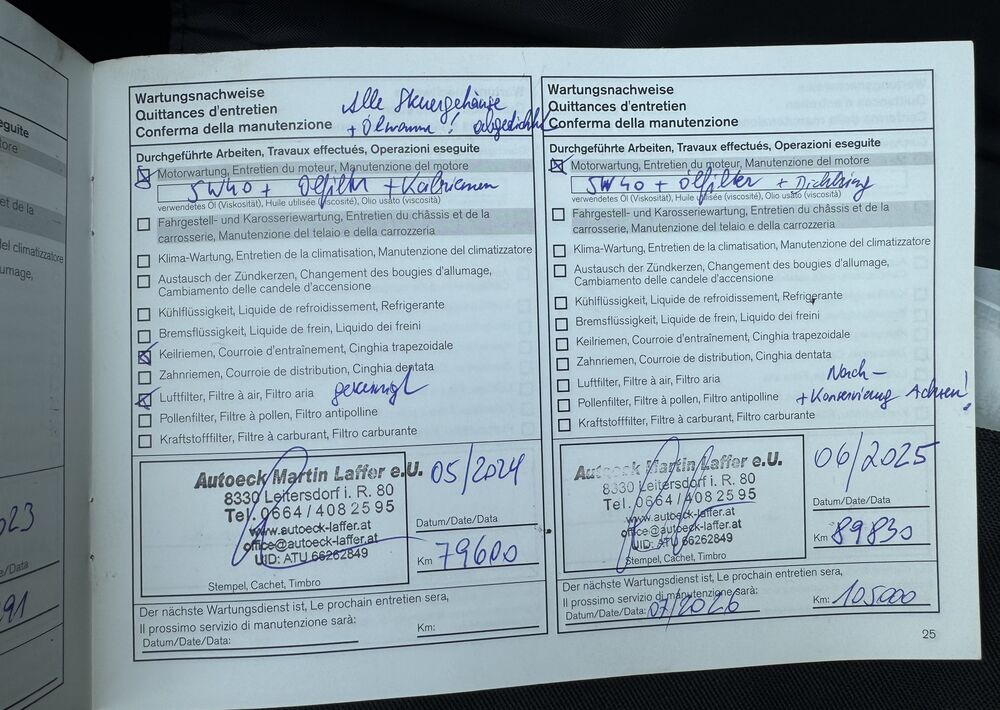 eguite
tore
et de la
del climatizzatore
umage,
023
e/Data
91
Wartungsnachweise
Quittances d'entretien
Conferma della manutenzione
Alle Steuergehäuse
+ Ölwanne! abgedichtet
Durchgeführte Arbeiten, Travaux effectués, Operazioni eseguite
Motorwartung, Entretien du moteur, Manutenzione del motore
5W40 + Ölfilter + Keilriemen
verwendetes Öl (Viskosität), Huile utilisée (viscosité), Olio usato (viscosità)
Fahrgestell- und Karosseriewartung, Entretien du châssis et de la
carrosserie, Manutenzione del telaio e della carrozzeria
Klima-Wartung, Entretien de la climatisation, Manutenzione del climatizzatore
Austausch der Zündkerzen, Changement des bougies d'allumage,
Cambiamento delle candele d'accensione
Kühlflüssigkeit, Liquide de refroidissement, Refrigerante
Bremsflüssigkeit, Liquide de frein, Liquido dei freini
Keilriemen, Courroie d'entraînement, Cinghia trapezoidale
Zahnriemen, Courroie de distribution, Cinghia dentata
Luftfilter, Filtre à air, Filtro aria gereinigt
Pollenfilter, Filtre à pollen, Filtro antipolline
Kraftstofffilter, Filtre à carburant, Filtro carburante
Autoeck Martin Laffer e.U.
8330 Leitersdorf i. R. 80
Tel. 0664 / 408 25 95
www.autoeck-laffer.at
office@autoeck-laffer.at
UID: ATU 66262849
Stempel, Cachet, Timbro
05/2024
Datum/Date/Data
Km 79600
Der nächste Wartungsdienst ist, Le prochain entretien sera,
Il prossimo servizio di manutenzione sarà:
Datum/Date/Data:
Km:
Wartungsnachweise
Quittances d'entretien
Conferma della manutenzione
Durchgeführte Arbeiten, Travaux effectués, Operazioni eseguite
Motorwartung, Entretien du moteur, Manutenzione del motore
5W40 + Ölfilter + Dichtung
verwendetes Öl (Viskosität), Huile utilisée (viscosité), Olio usato (viscosità)
Fahrgestell- und Karosseriewartung, Entretien du châssis et de la
carrosserie, Manutenzione del telaio e della carrozzeria
Klima-Wartung, Entretien de la climatisation, Manutenzione del climatizzatore
Austausch der Zündkerzen, Changement des bougies d'allumage,
Cambiamento delle candele d'accensione
Kühlflüssigkeit, Liquide de refroidissement, Refrigerante
Bremsflüssigkeit, Liquide de frein, Liquido dei freini
Keilriemen, Courroie d'entraînement, Cinghia trapezoidale
Zahnriemen, Courroie de distribution, Cinghia dentata
Luftfilter, Filtre à air, Filtro aria
Nach-
Pollenfilter, Filtre à pollen, Filtro antipolline + Konservierung Achsen!
Kraftstofffilter, Filtre à carburant, Filtro carburante
Autoeck Martin Laffer e.U.
8330 Leitersdorf i. R. 80
Tel. 0664 / 408 25 95
www.autoeck-laffer.at
office@autoeck-laffer.at
UID: ATU 66262849
Stempel, Cachet, Timbro
06/2025
Datum/Date/Data
Km 89830
Der nächste Wartungsdienst ist, Le prochain entretien sera,
Il prossimo servizio di manutenzione sarà:
Datum/Date/Data: 07/2026
Km: 105000
25